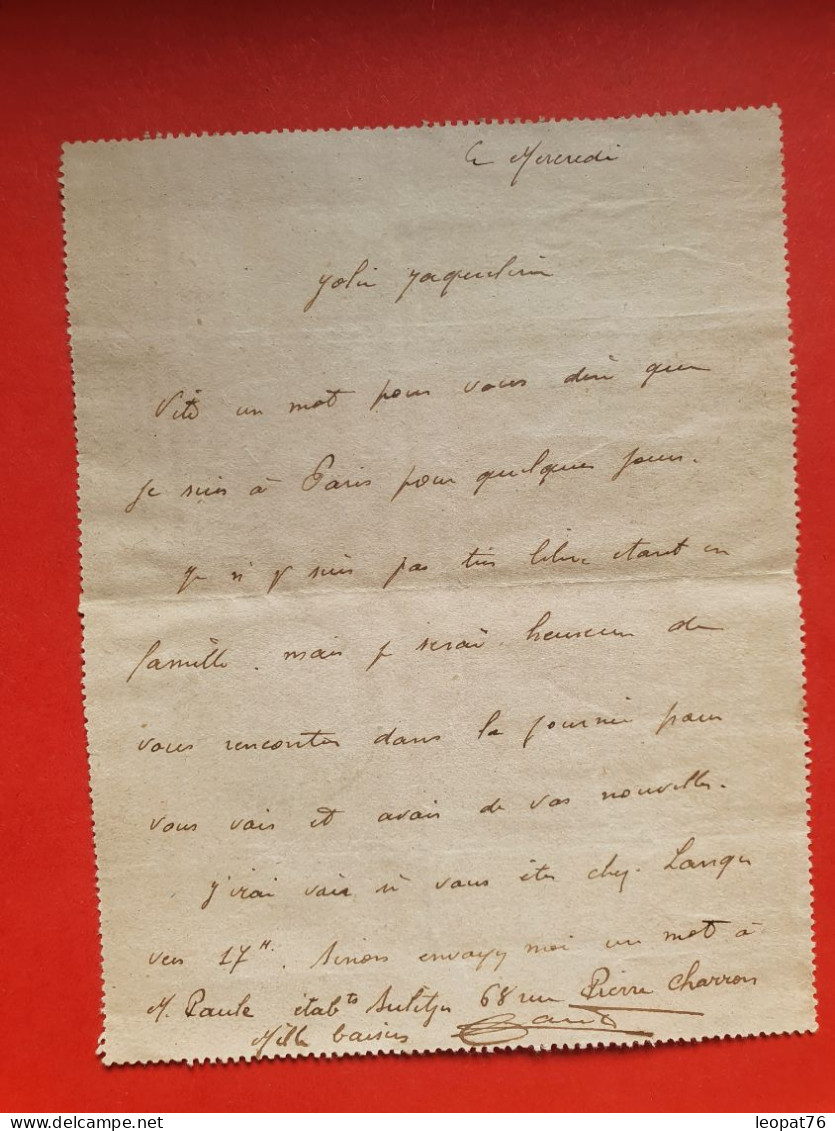 Ce Mercredi
Jolie Jaqueline
Vite un mot pour vous dire que
je suis à Paris pour quelques jours.
Je n'y suis pas très libre etant en
famille. mais je serai heureux de
vous rencontrer dans la journée pour
vous voir et avoir de vos nouvelles.
J'irai voir si vous êtes chez Langer
vers 17H. Sinon envoyez moi un mot à
M. Paule étabts 68 rue Pierre Charron
Mille baisers
leopat76